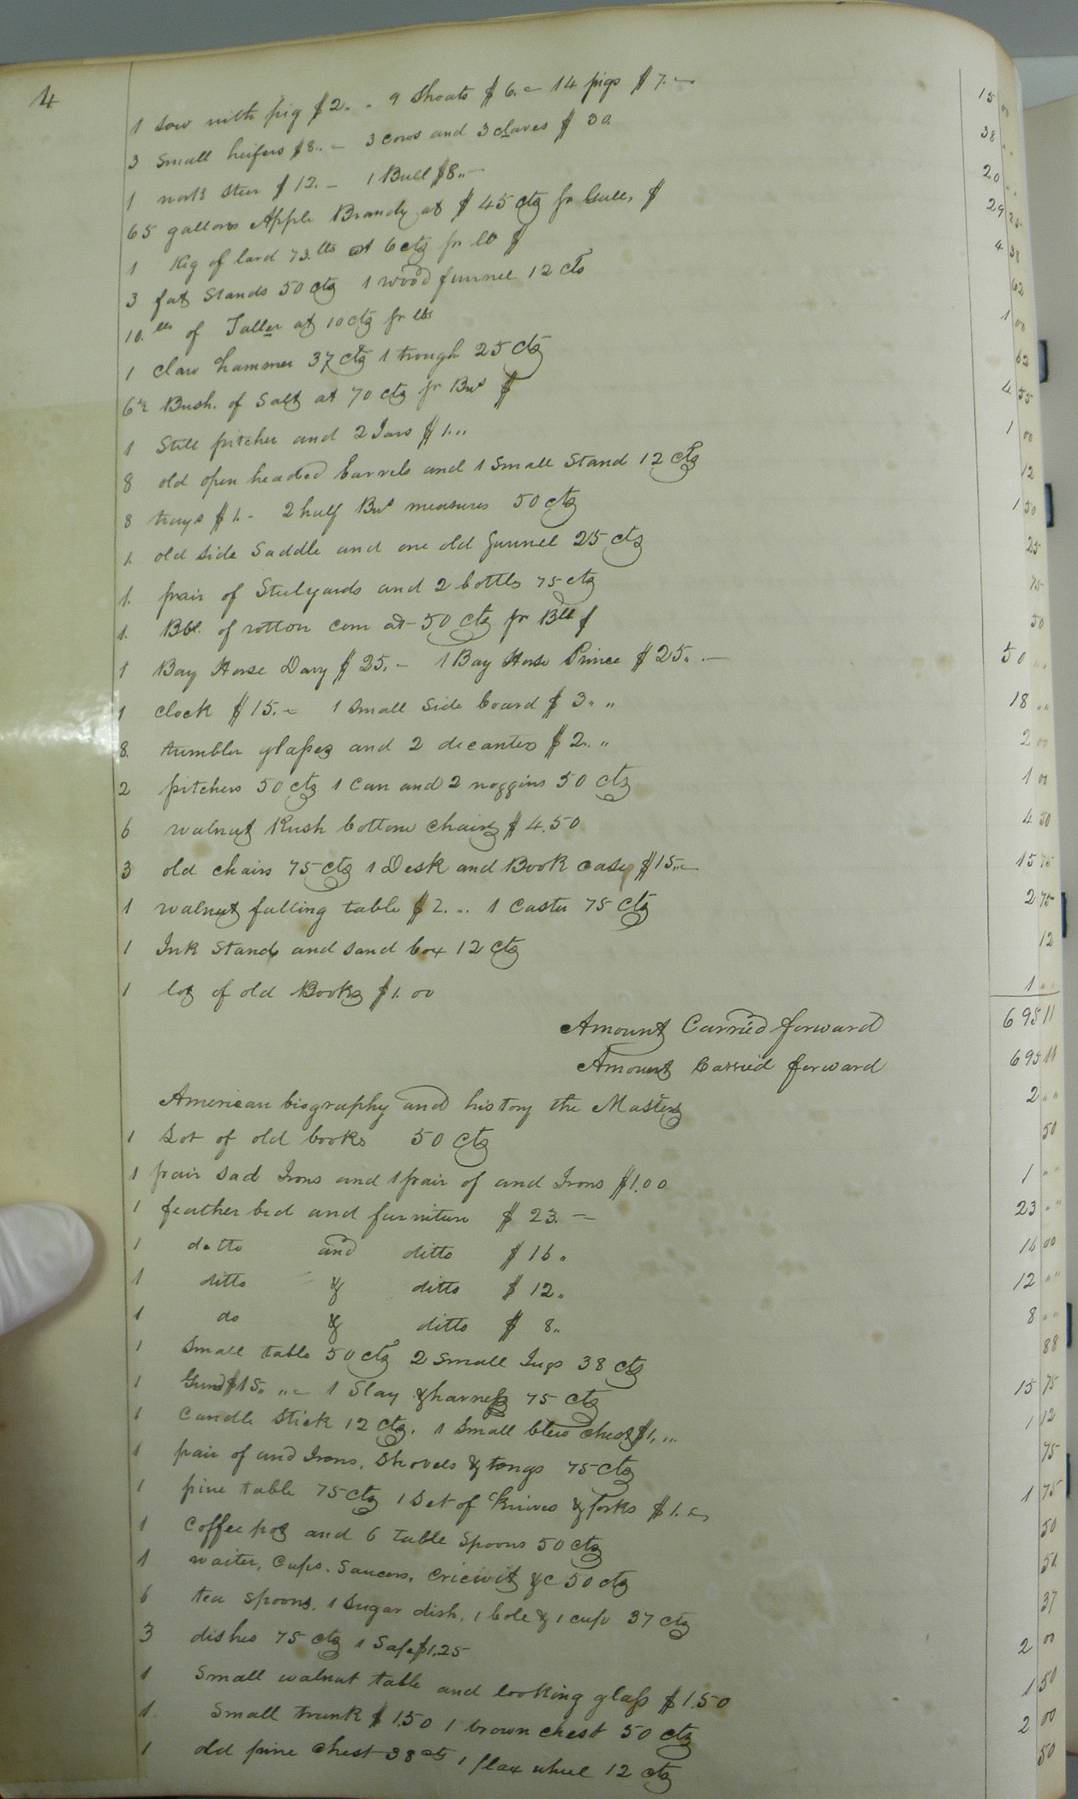 4
1 Sow with pig $2. . 9 Shoats $6. 14 pigs $7. 15 00
3 Small heifers $8.. 3 cows and 3 claves $30. 38 ..
1 work Steer $12. 1 Bull $8.. 20 ..
65 gallons Apple Brandy at $45 cts pr Gall, $ 29 25
1 Keg of lard 73. lbs at 6 cts pr lb $ 4 38
3 fat Stands 50 cts 1 wood funnel 12 cts 62
10. lbs of Taller at 10 cts pr lbs 1 00
1 Claw hammer 37 cts 1 trough 25 cts 62
6½ Bush. of Salt at 70 cts pr Bus $ 4 55
1 Still pitcher and 2 Jars $1... 1 00
8 old open headed barrels and 1 Small Stand 12 cts 12
8 trays $1. - 2 half Bus measures 50 cts 1 50
1. old side Saddle and one old funnel 25 cts 25
1. pair of Steelyards and 2 bottles 75 cts 75
1. Bbl. of rotton corn at 50 cts pr Bbl $ 50
1 Bay Horse Davy $25. - 1 Bay Horse Prince $25.. 50 ..
1 clock $15. 1 Small Side board $3. " 18 ..
8. tumbler glasses and 2 decanters $2. " 2 00
2 pitchers 50 cts 1 Can and 2 noggins 50 cts 1 00
6 walnut Rush bottom chairs $4.50 4 50
3 old chairs 75 cts 1 Desk and Book case $15.. 15 75
1 walnut falling table $2. .. 1 Caster 75 cts 2 75
1 Ink Stand and sand box 12 cts 12
1 lot of old Books $1.00 1 ..
Amount Carried forward 695 11
Amount Carried forward 695 11
American biography and history the Masters 2 ..
1 Lot of old books 50 cts 50
1 pair Sad Irons and 1 pair of and Irons $1.00 1 ..
1 feather bed and furniture $23. - 23 ..
1 ditto and ditto $16. 16 00
1 ditto & ditto $12. 12 ..
1 do & ditto $8.. 8 ..
1 Small table 50 cts 2 Small Jugs 38 cts 88
1 Gun $15. ,, 1 Slay & harness 75 cts 15 75
1 Candle Stick 12 cts. 1 Small blew Chest $1. ... 1 12
1 pair of and Irons, Shovels & tongs 75 cts 75
1 pine table 75 cts 1 Set of Knives & forks $1. 1 75
1 Coffee pot and 6 table Spoons 50 cts 50
1 waiter, Cups. Saucers, &c 50 cts 50
6 tea Spoons, 1 Sugar dish, 1 bole & 1 cup 37 cts 37
3 dishes 75 cts 1 Safe $1.25 2 00
1 Small walnut table and looking glass $1.50 1 50
1. Small trunk $1.50 1 brown chest 50 cts 2 00
1 old pine Chest 38 cts 1 flax wheel 12 cts 50